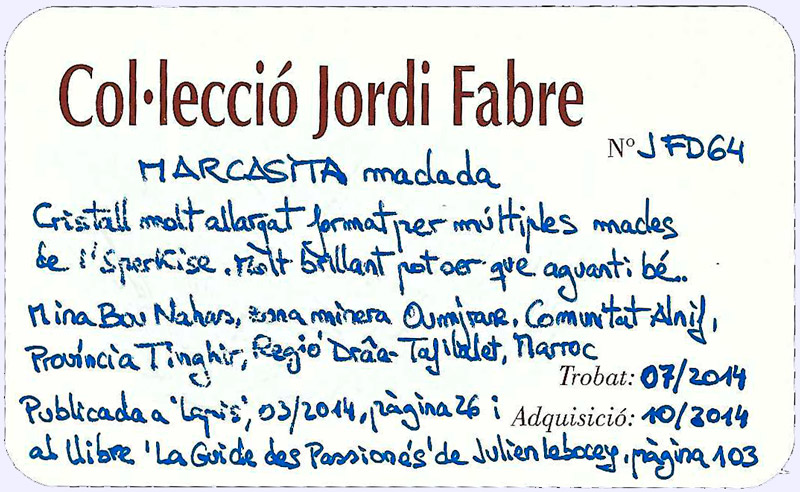 Col·lecció Jordi Fabre
Nº JFD64
MARCASITA maclada
Cristall molt allargat format per múltiples macles
de l'Sperkise. Molt brillant pot ser que aguanti bé..
Mina Bou Nahas, zona minera Oumjrane, Comunitat Alnif,
Província Tinghir, Regió Drâa-Tafilalet, Marroc
Trobat: 07/2014
Publicada a 'Lapis', 03/2014, pàgina 26 i
Adquisició: 10/2014
al llibre 'La Guide des Passionés' de Julien Lebocey, pàgina 103